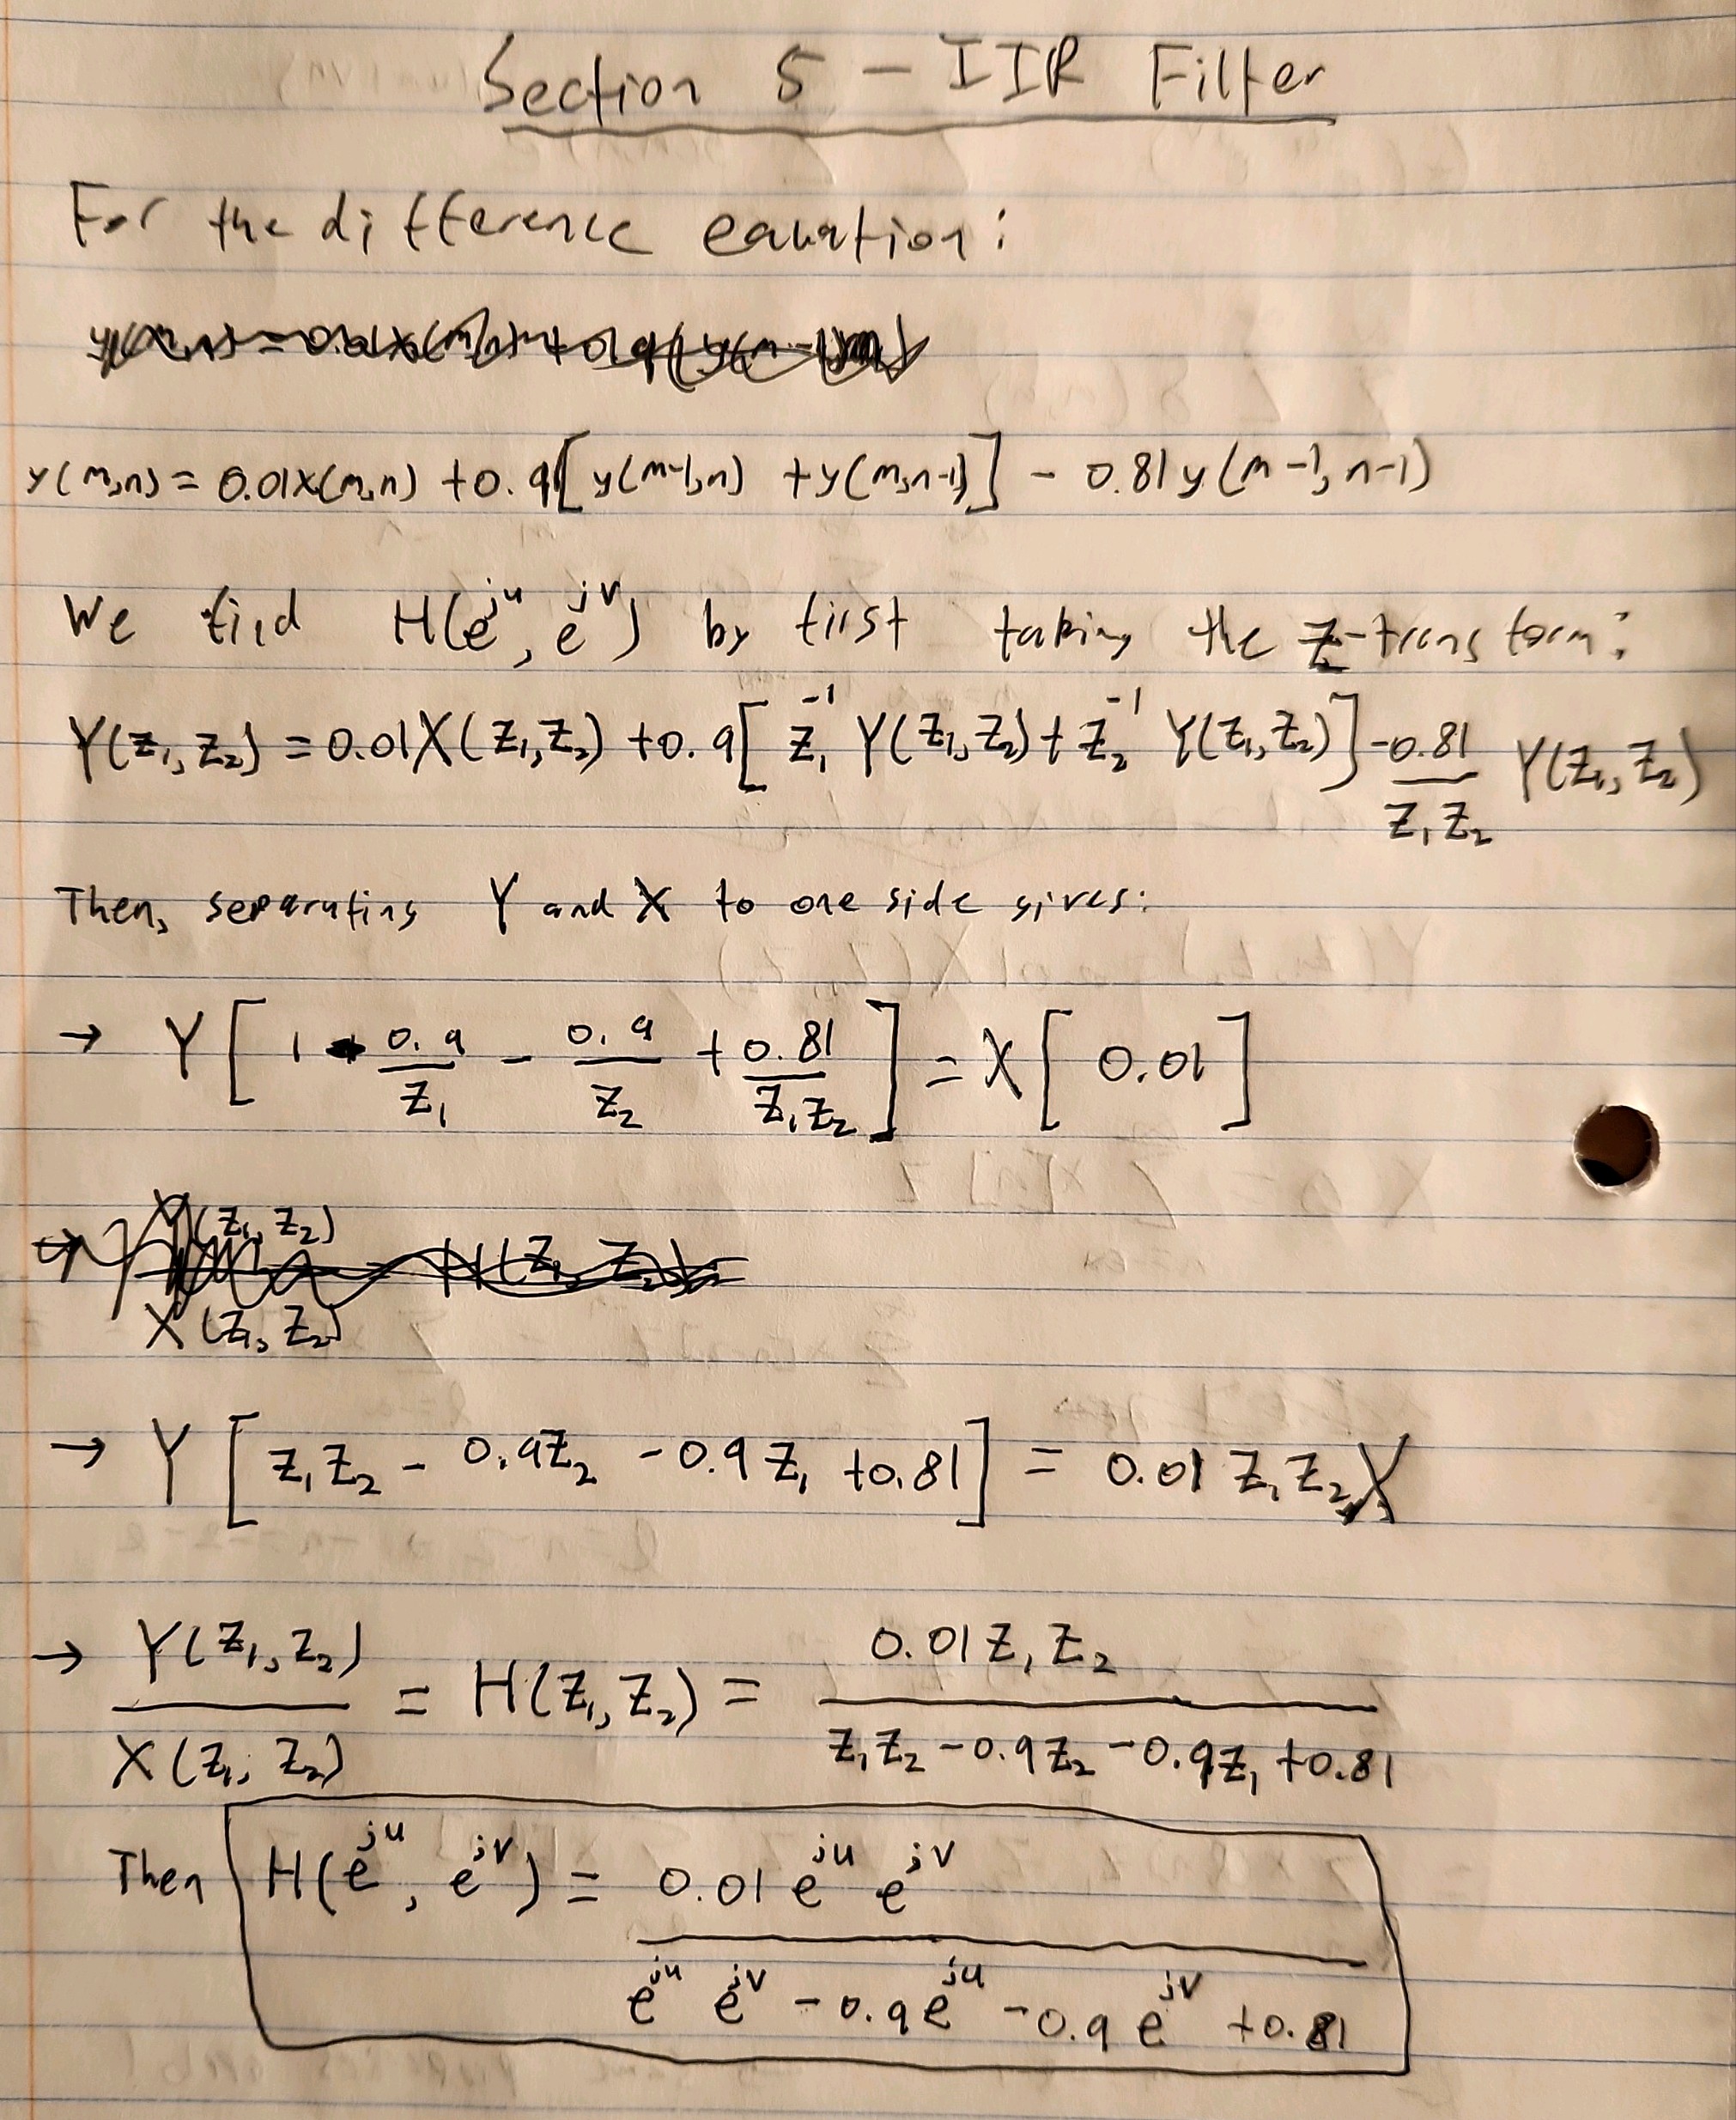 Section 5 - IIR Filter
For the difference equation:
y(m,n) = 0.01x(m,n) + 0.9[ y(m-1,n) + y(m,n-1) ] - 0.81 y(m-1, n-1)
We find H(e^{ju}, e^{jv}) by first taking the Z-transform:
Y(z_1, z_2) = 0.01X(z_1, z_2) + 0.9[ z_1^{-1} Y(z_1, z_2) + z_2^{-1} Y(z_1, z_2) ] - \frac{0.81}{z_1 z_2} Y(z_1, z_2)
Then, separating Y and X to one side gives:
→ Y [ 1 - \frac{0.9}{z_1} - \frac{0.9}{z_2} + \frac{0.81}{z_1 z_2} ] = X[ 0.01 ]
→ Y [ z_1 z_2 - 0.9z_2 - 0.9z_1 + 0.81 ] = 0.01 z_1 z_2 X
→ \frac{Y(z_1, z_2)}{X(z_1, z_2)} = H(z_1, z_2) = \frac{0.01 z_1 z_2}{z_1 z_2 - 0.9z_2 - 0.9z_1 + 0.81}
Then H(e^{ju}, e^{jv}) = \frac{0.01 e^{ju} e^{jv}}{e^{ju} e^{jv} - 0.9e^{ju} - 0.9e^{jv} + 0.81}